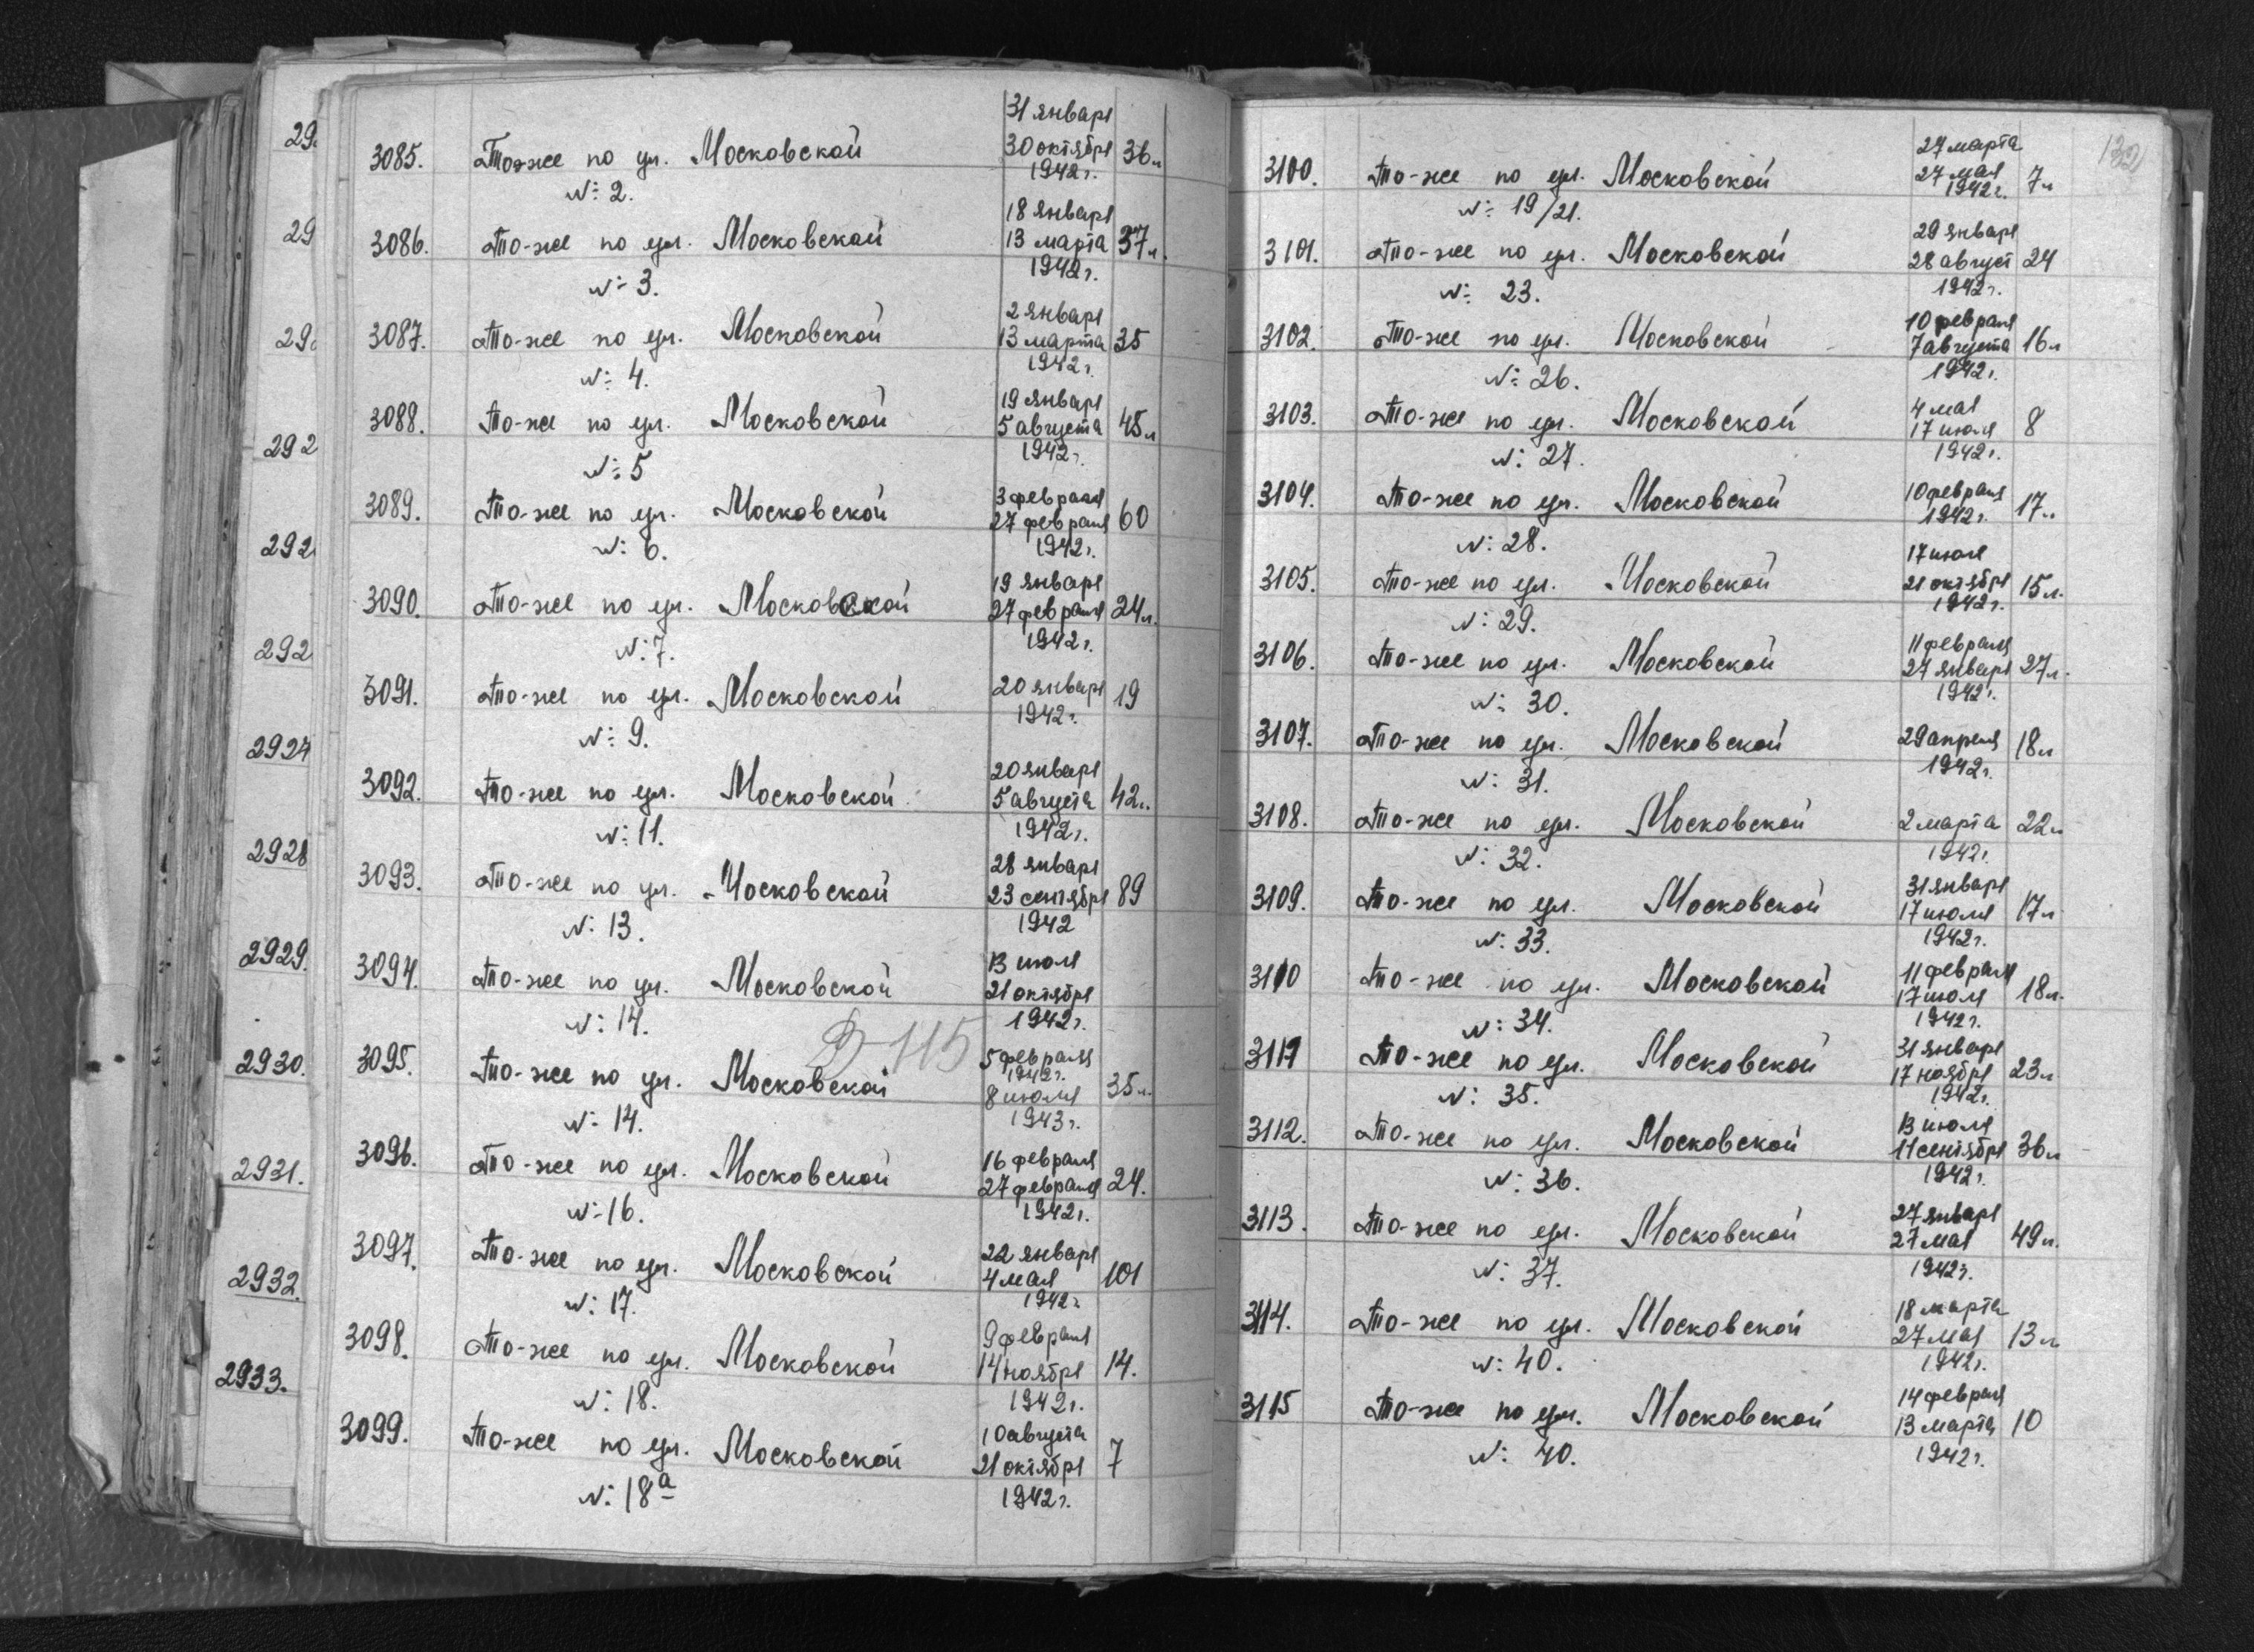 29
29
29
292
292
292
2927
2928
2929.
2930.
2931.
2932.
2933.
31 января
3085. То-же по ул. Московской 30 октября 36 л
№ 2. 1942 г.
18 января
3086. То-же по ул. Московской 13 марта 37 л.
№ 3. 1942 г.
2 января
3087. То-же по ул. Московской 13 марта 35
№ 4. 1942 г.
19 января
3088. То-же по ул. Московской 5 августа 45 л
№ 5 1942 г.
3 февраля
3089. То-же по ул. Московской 27 февраля 60
№ 6. 1942 г.
19 января
3090. То-же по ул. Московской 27 февраля 24 л.
№ 7. 1942 г.
3091. То-же по ул. Московской 20 января 19
№ 9. 1942 г.
20 января
3092. То-же по ул. Московской 5 августа 42 л.
№ 11. 1942 г.
28 января
3093. То-же по ул. Московской 23 сентября 89
№ 13. 1942
13 июля
3094. То-же по ул. Московской 21 октября
№ 14. 1942 г.
115
5 февраля
1942 г.
3095. То-же по ул. Московской 8 июля 35 л.
№ 14. 1943 г.
16 февраля
3096. То-же по ул. Московской 27 февраля 24.
№ 16. 1942 г.
22 января
3097. То-же по ул. Московской 4 мая 101
№ 17. 1942 г
9 февраля
3098. То-же по ул. Московской 14 ноября 14.
№ 18. 1942 г.
10 августа
3099. То-же по ул. Московской 21 октября 7
№ 18а 1942 г.
132
27 марта
3100. То-же по ул. Московской 27 мая 7 л
№ 19/21. 1942 г.
29 января
3101. То-же по ул. Московской 28 август 24
№ 23. 1942 г.
10 февраля
3102. То-же по ул. Московской 7 августа 16 л
№ 26. 1942 г.
4 мая
3103. То-же по ул. Московской 17 июля 8
№ 27. 1942 г.
3104. То-же по ул. Московской 10 февраля 17 л.
№ 28. 1942 г.
17 июля
3105. То-же по ул. Московской 21 октября 15 л.
№ 29. 1942 г.
11 февраля
3106. То-же по ул. Московской 27 января 27 л.
№ 30. 1942 г.
3107. То-же по ул. Московской 29 апреля 18 л
№ 31. 1942 г.
3108. То-же по ул. Московской 2 марта 22 л
№ 32. 1942 г.
31 января
3109. То-же по ул. Московской 17 июля 17 л
№ 33. 1942 г.
11 февраля
3110 То-же по ул. Московской 17 июля 18 л.
№ 34. 1942 г.
31 января
3111 То-же по ул. Московской 17 ноября 23 л
№ 35. 1942 г.
13 июля
3112. То-же по ул. Московской 11 сентября 36 л
№ 36. 1942 г.
27 января
3113. То-же по ул. Московской 27 мая 49 л.
№ 37. 1942 г.
18 марта
3114. То-же по ул. Московской 27 мая 13 л
№ 40. 1942 г.
14 февраля
3115 То-же по ул. Московской 13 марта 10
№ 40. 1942 г.